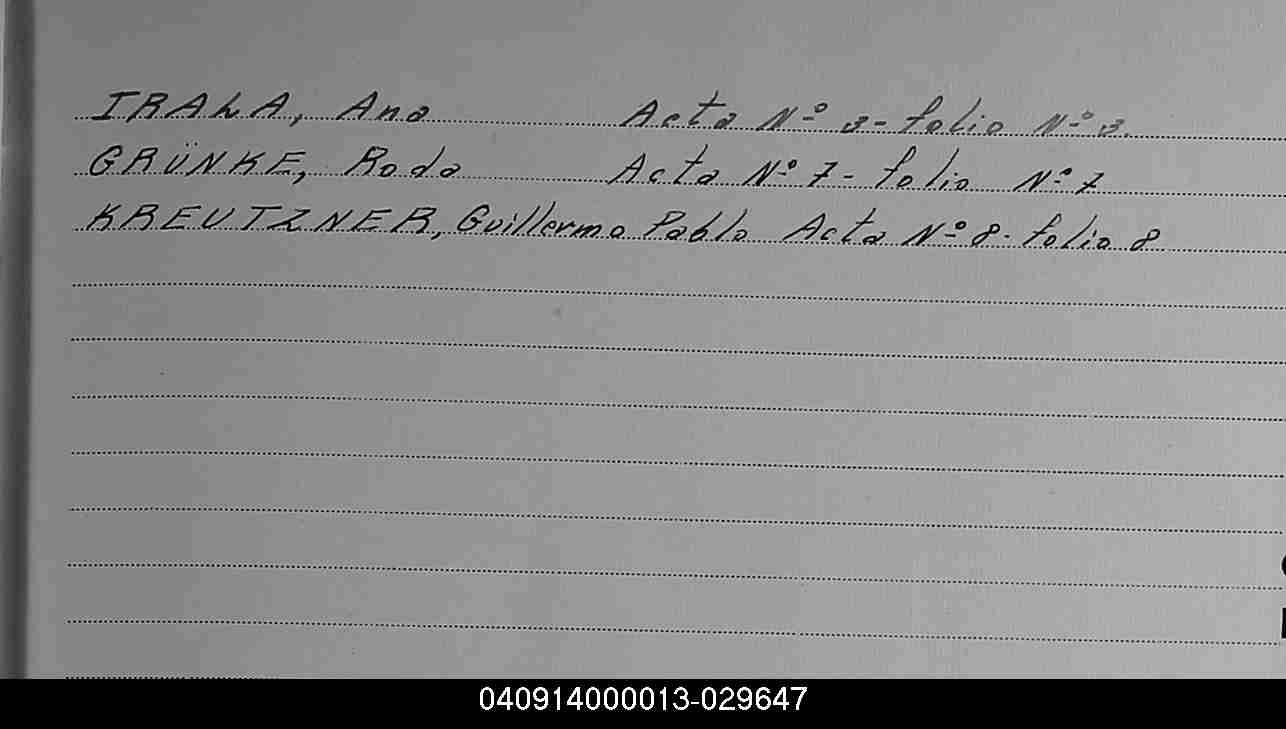 IRALA, Ana Acta Nº 3- folio Nº 3.
GRÜNKE, Roda Acta Nº 7- folio Nº 7
KREUTZNER, Guillermo Pablo Acta Nº 8- folio 8
040914000013-029647